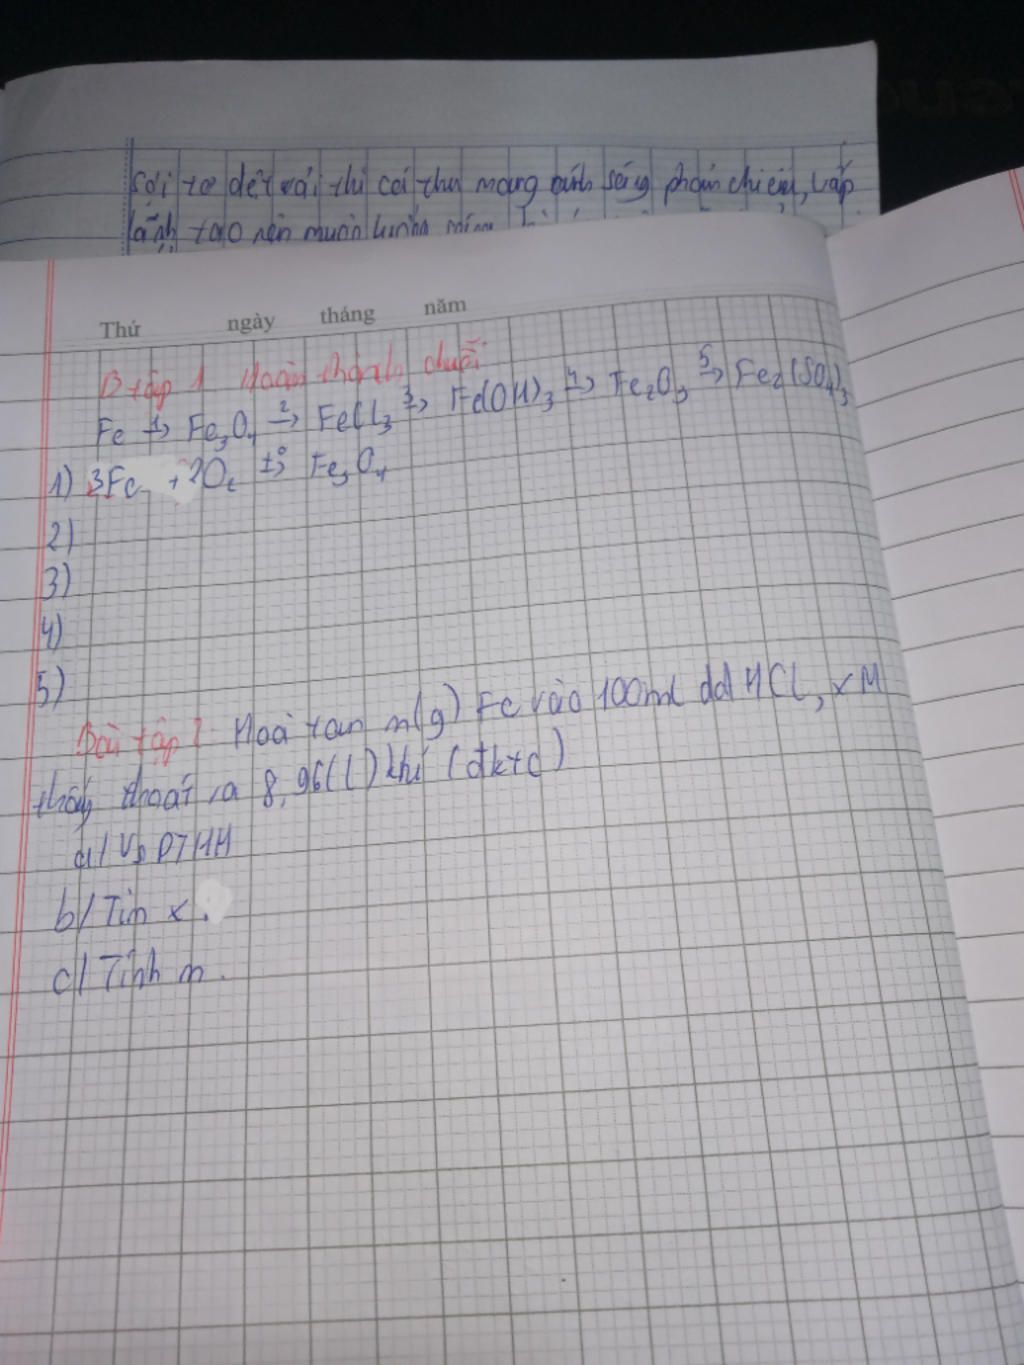 Sợi tơ dệt vải thì coi như mang ánh sáng phản chiếu, lấp
lánh tạo nên muôn
Thứ ngày tháng năm
B tập 1 Hoàn thành chuỗi
Fe 1→ Fe₃O₄ 2→ FeCl₃ 3→ Fe(OH)₃ 4→ Fe₂O₃ 5→ Fe₂(SO₄)₃
1) 3Fe + 2O₂ t°→ Fe₃O₄
2)
3)
4)
5)
Bài tập 2 Hoà tan m(g) Fe vào 100ml dd HCl, xM
thấy thoát ra 8,96(l) khí (đktc)
a/ Vp PTHH
b/ Tìm x.
c/ Tính m.